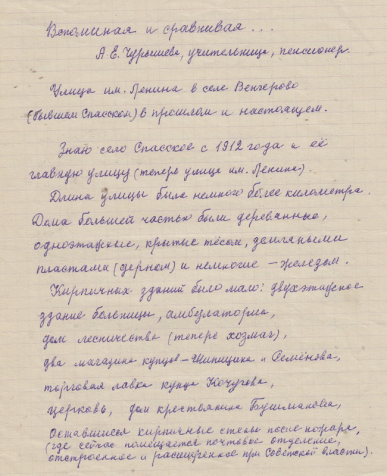 Вспоминая и сравнивая...
А.Е. Чурышева, учительница, пенсионер.
Улица им. Ленина в селе Венгерово
(бывшем Спасском) в прошлом и настоящем.
Знаю село Спасское с 1912 года и её
главную улицу (теперь улица им. Ленина).
Длина улицы была немного более километра.
Дома большей частью были деревянные,
одноэтажные, крытые тёсом, двигаными
пластами (дерном) и немногие – железом.
Кирпичных зданий было мало: двухэтажное
здание больницы, амбулатория,
дом лесничества (теперь хозмаг),
два магазина купцов – Шипицина и Семёнова,
торговая лавка купца Кочугова,
церковь, дом крестьянина Бушмановка,
оставшиеся кирпичные стены после пожара,
(где сейчас помещается почтовое отделение,
отстроенное и расширенное при Советской власти).